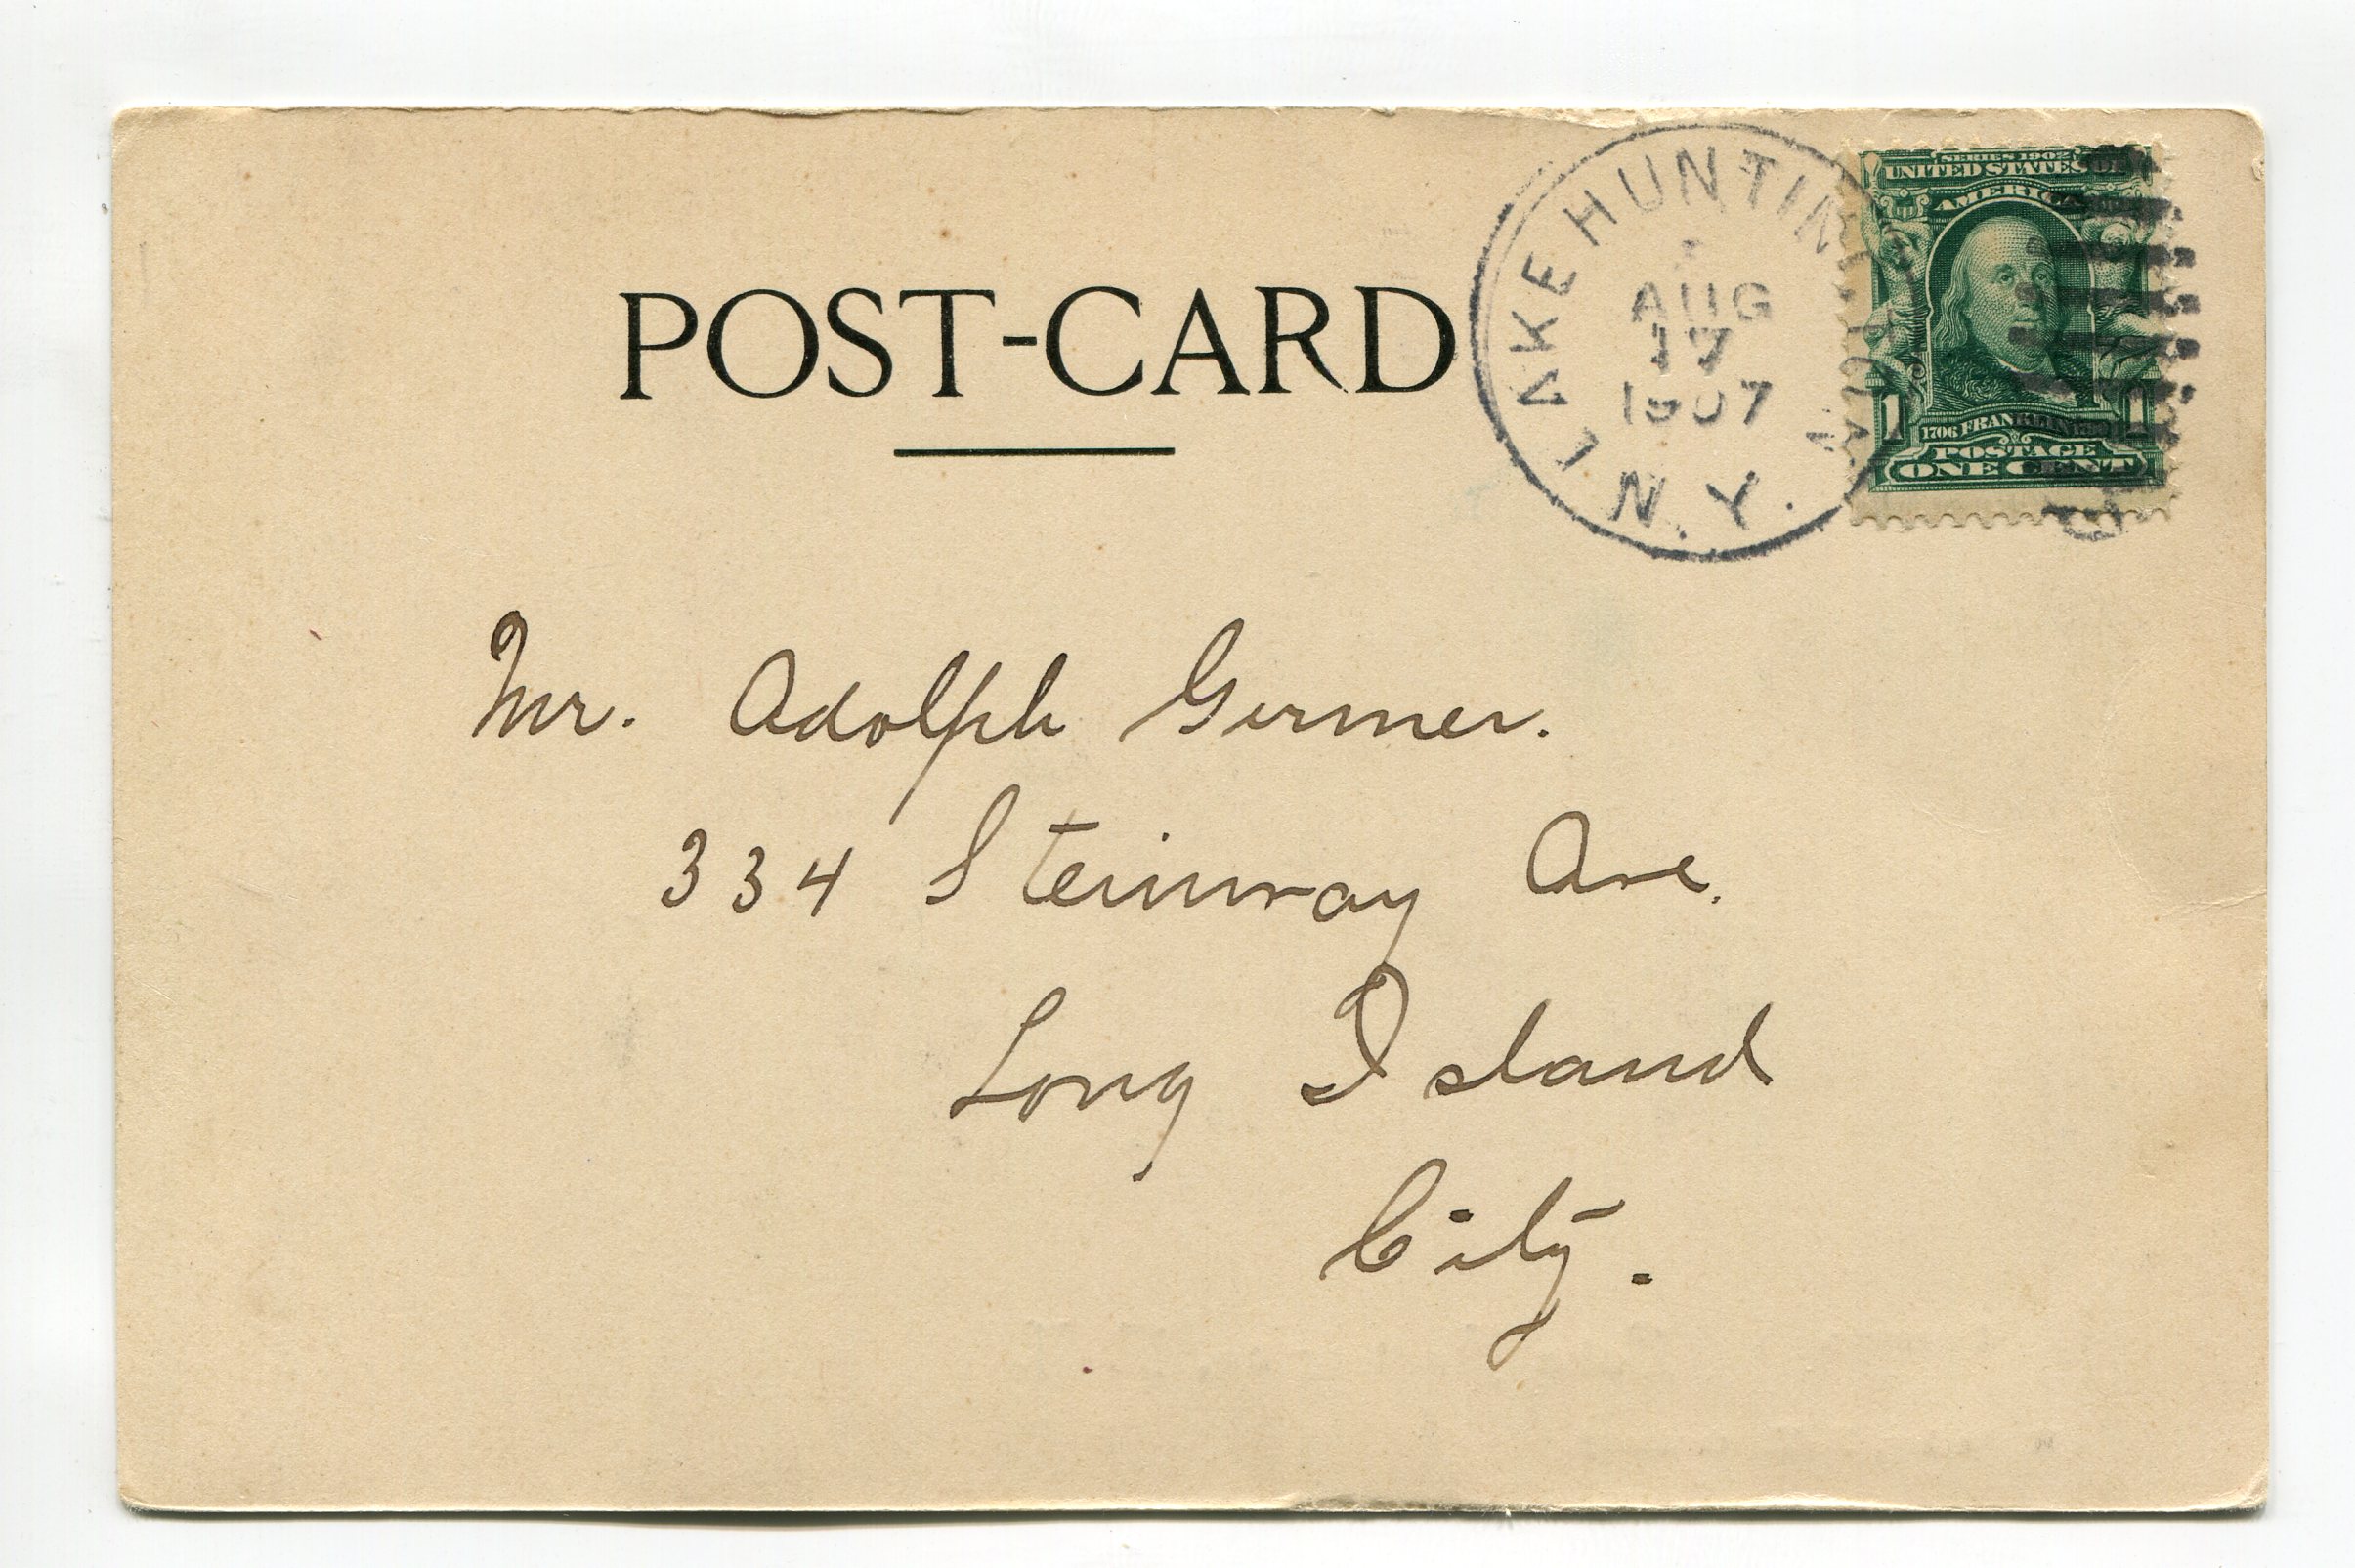 POST-CARD
LAKE HUNTINGTON
N.Y.
AUG
17
1907
SERIES 1902
UNITED STATES OF
AMERICA
1706 FRANKLIN 1790
1 1
POSTAGE
ONE CENT
Mr. Adolph Germer.
334 Steinway Ave.
Long Island
City.